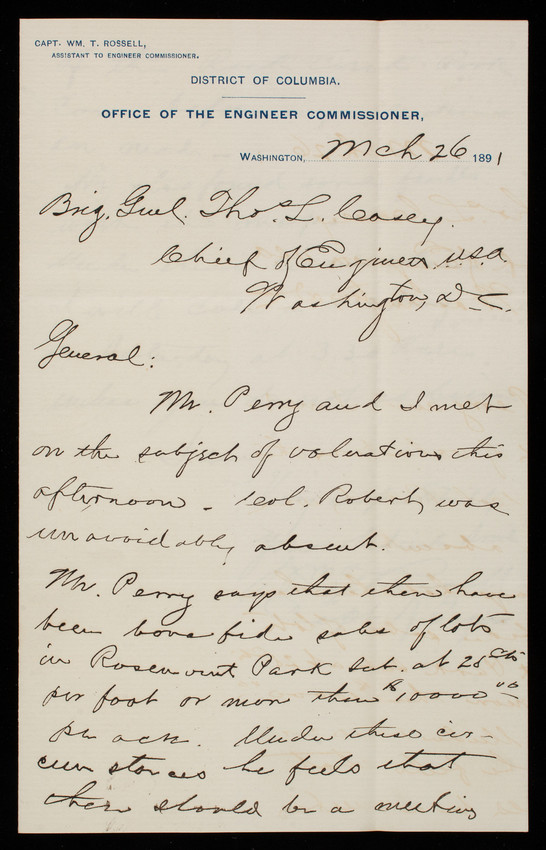 CAPT. WM. T. ROSSELL,
ASSISTANT TO ENGINEER COMMISSIONER.
DISTRICT OF COLUMBIA.
OFFICE OF THE ENGINEER COMMISSIONER,
WASHINGTON, Mch 26 1891
Brig. Genl. Thos. L. Casey.
Chief of Engineers U.S.A.
Washington, D.C.
General:
Mr. Perry and I met
on the subject of valuations this
afternoon - Col. Robert, was
unavoidably absent.
Mr. Perry says that there have
been bona fide sales of lots
in Rosemount Park Sub. at 25 cts
per foot or more than $10000.00
per acre. Under these cir-
cumstances he feels that
there should be a meeting